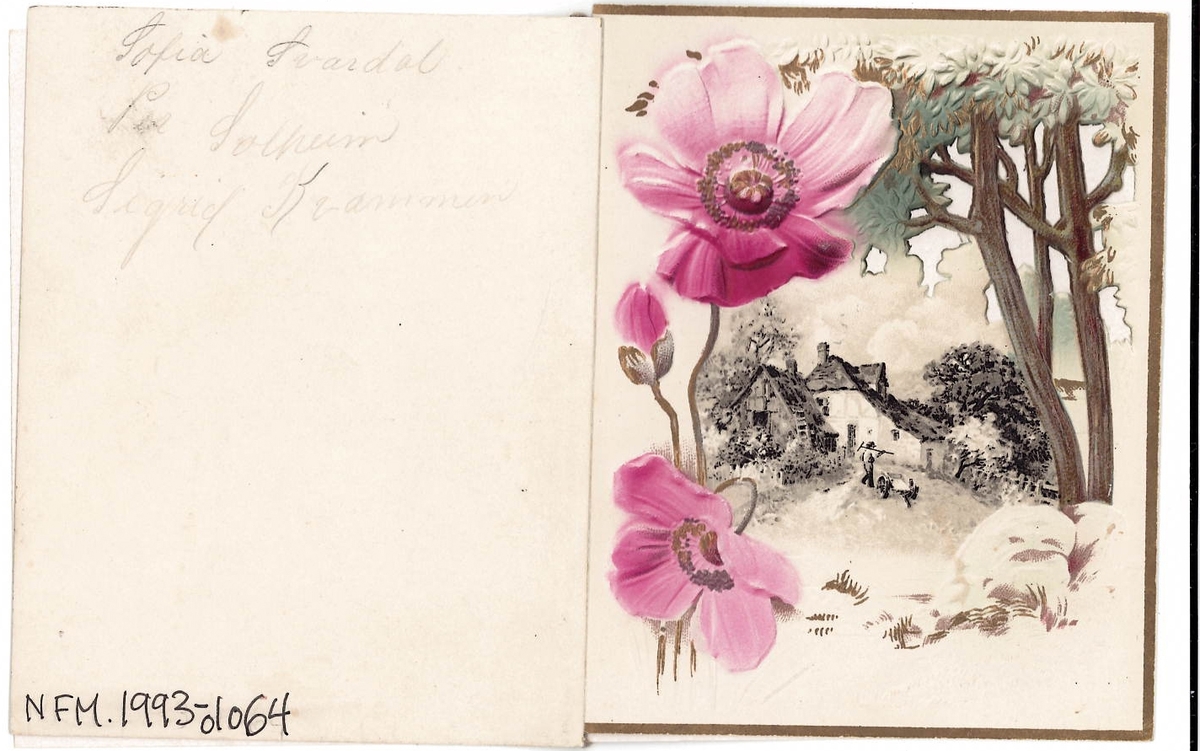 Sofia Svardal
Per Solheim
Sigrid Krammen
NFM.1993-01064